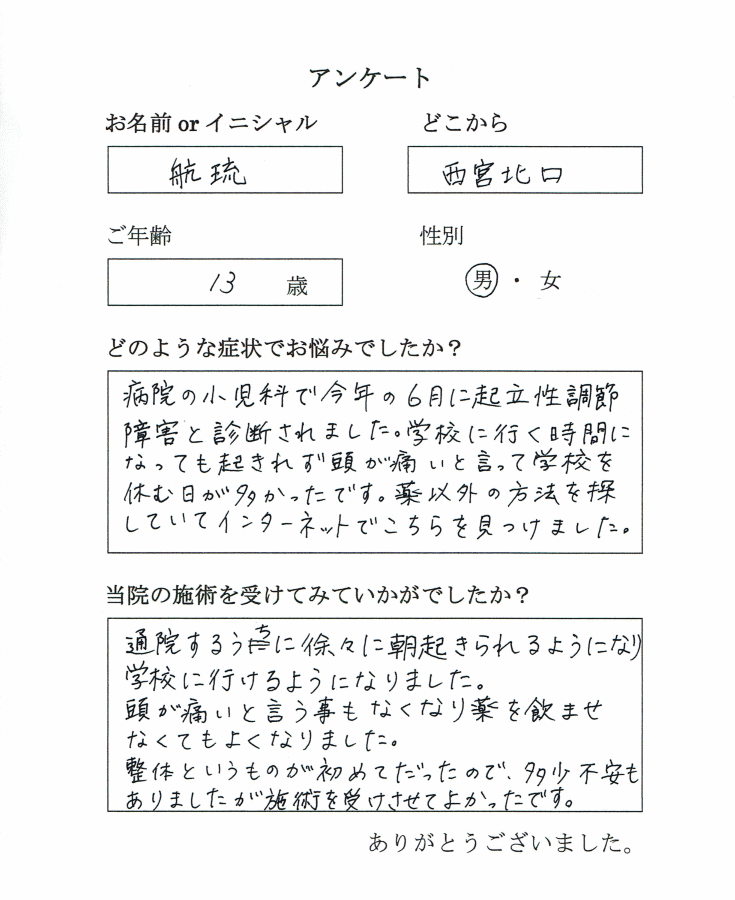 アンケート
お名前 or イニシャル　どこから
航琉　西宮北口
ご年齢　性別
13 歳　男・女
どのような症状でお悩みでしたか？
病院の小児科で今年の6月に起立性調節
障害と診断されました。学校に行く時間に
なっても起きれず頭が痛いと言って学校を
休む日が多かったです。薬以外の方法を探
していてインターネットでこちらを見つけました。
当院の施術を受けてみていかがでしたか？
通院するうちに徐々に朝起きられるようになり
学校に行けるようになりました。
頭が痛いと言う事もなくなり薬を飲ませ
なくてもよくなりました。
整体というものが初めてだったので、多少不安も
ありましたが施術を受けさせてよかったです。
ありがとうございました。